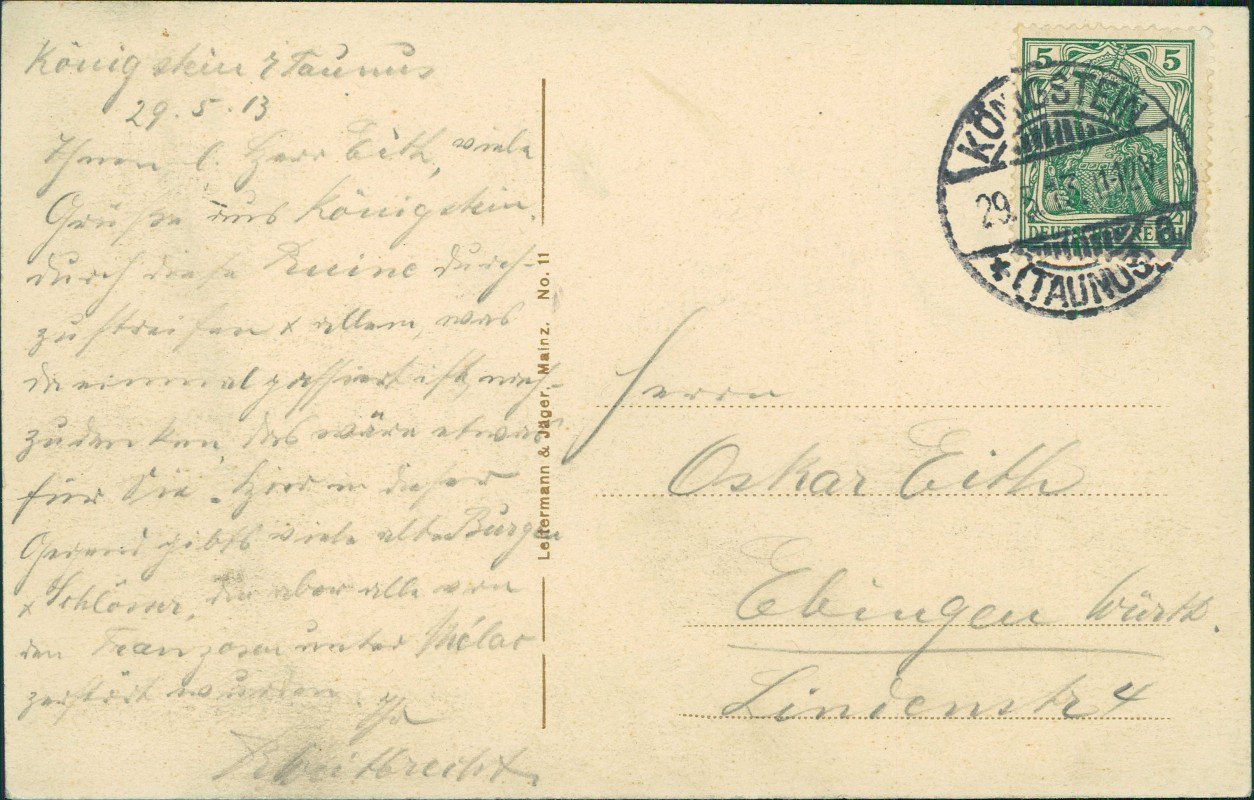 Königstein i/Taunus
29.5.13
Ihnen l. Herr Eith, viele
Grüße aus Königstein.
durch diese Ruine durch-
zustreifen & allem, was
da einmal passiert ist, nach-
zudenken, das wäre etwas
für Sie. Hier in dieser
Gegend gibts viele alte Burgen
& Schlösser, die aber alle von
den Franzosen unter Mélac
zerstört wurden.
Ihr
Weitbrecht.
Leitermann & Jäger, Mainz. No. 11
5 5
DEUTSCHES REICH
KÖNIGSTEIN
29. 5. 13. 11-12V
* (TAUNUS) a
Herrn
Oskar Eith
Ebingen Württ.
Lindenstr 4